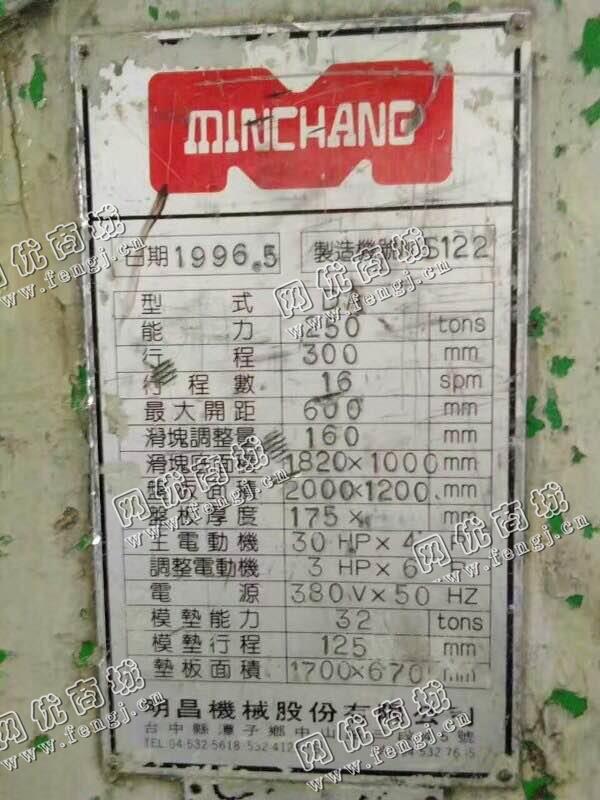 MINCHANG
日期 1996.5 製造機號 5122
型式
能力 250 tons
行程 300 mm
行程數 16 spm
最大開距 600 mm
滑塊調整量 160 mm
滑塊底面積 1820×1000 mm
盤板面積 2000×1200 mm
盤板厚度 175× mm
主電動機 30 HP× 4 P
調整電動機 3 HP× 6 P
電源 380 V× 50 HZ
模墊能力 32 tons
模墊行程 125 mm
墊板面積 1700×670 mm
明昌機械股份有限公司
台中縣潭子鄉中山 號
TEL 04-5325618
网优商城
www.fengj.cn
网优商城
www.fengj.cn
网优商城
www.fengj.cn
网优商城
www.fengj.cn
网优商城
www.fengj.cn